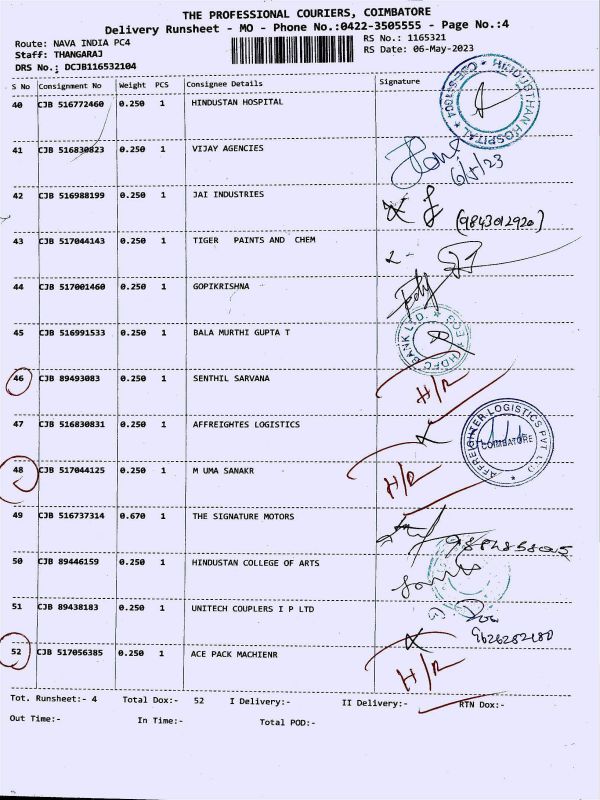 THE PROFESSIONAL COURIERS, COIMBATORE
Delivery Runsheet - MO - Phone No.:0422-3505555 - Page No.:4
Route: NAVA INDIA PC4 RS No.: 1165321
Staff: THANGARAJ RS Date: 06-May-2023
DRS No.: DCJB116532104
S No Consignment No Weight PCS Consignee Details Signature
40 CJB 516772460 0.250 1 HINDUSTAN HOSPITAL
HINDUSTHAN HOSPITAL
41 CJB 516830823 0.250 1 VIJAY AGENCIES
42 CJB 516988199 0.250 1 JAI INDUSTRIES (9843012920)
43 CJB 517044143 0.250 1 TIGER PAINTS AND CHEM
44 CJB 517001460 0.250 1 GOPIKRISHNA
45 CJB 516991533 0.250 1 BALA MURTHI GUPTA T
HDFC BANK LTD.
46 CJB 89493083 0.250 1 SENTHIL SARVANA H/R
47 CJB 516830831 0.250 1 AFFREIGHTES LOGISTICS
AFFREIGHTER LOGISTICS PVT LTD
COIMBATORE
48 CJB 517044125 0.250 1 M UMA SANAKR H/R
49 CJB 516737314 0.670 1 THE SIGNATURE MOTORS
50 CJB 89446159 0.250 1 HINDUSTAN COLLEGE OF ARTS
51 CJB 89438183 0.250 1 UNITECH COUPLERS I P LTD
52 CJB 517056385 0.250 1 ACE PACK MACHIENR H/R
Tot. Runsheet:- 4 Total Dox:- 52 I Delivery:- II Delivery:- RTN Dox:-
Out Time:- In Time:- Total POD:-